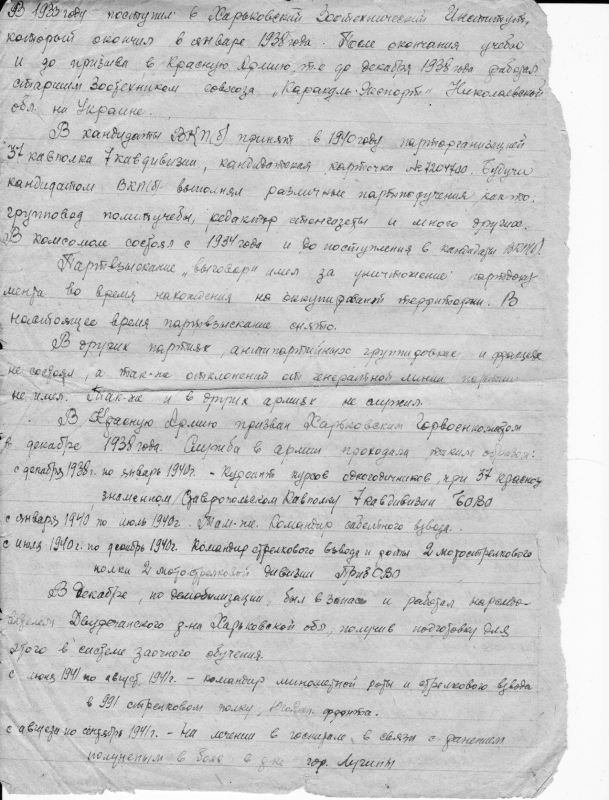 В 1933 году поступил в Харьковский Зоотехнический Институт,
который окончил в январе 1938 года. После окончания учебы
и до призыва в Красную Армию, т.е до декабря 1938 года работал
старшим Зоотехником совхоза „Каракуль-Экспорт" Николаевской
обл. на Украине.
В кандидаты ВКП(б) принят в 1940 году парторганизацией
37 кавполка 7 кавдивизии, кандидатская карточка Будучи
кандидатом ВКП(б) выполнял различные партпоручения как то:
групповод политучебы, редактор стенгазеты и много других.
В комсомоле состоял с 1934 года и до поступления в кандидаты ВКП(б).
Партвзыскание „выговор" имел за уничтожение партдоку
мента во время нахождения на оккупированной территории. В
настоящее время партвзыскание снято.
В других партиях, антипартийных группировках и фракциях
не состоял, а так-же отклонений от генеральной линии партии
не имел. Так-же и в других армиях не служил.
В Красную Армию призван Харьковским Горвоенкоматом
в декабре 1938 года. Служба в армии проходила таким образом:
с декабря 1938г. по январь 1940г. - Курсант курсов одногодичников, при 37 красно
знаменном Ставропольском Кавполку 7 кавдивизии БОВО
с января 1940 по июль 1940г. Там-же. Командир сабельного взвода.
с июля 1940г. по декабрь 1940г. Командир стрелкового взвода и роты 2 мотострелкового
полка 2 мотострелковой дивизии ПрибОВО
В Декабре, по демобилизации, был в запасе и работал
Двуречанского р-на Харьковской обл, получив подготовку для
этого в системе заочного обучения.
с июня 1941 по август 1941г. - командир минометной роты и стрелкового взвода
в 991 стрелковом полку, фронта.
с августа по сентябрь 1941г. - На лечении в госпитале, в связи с ранением
полученым в боях в р-не гор. Лугины